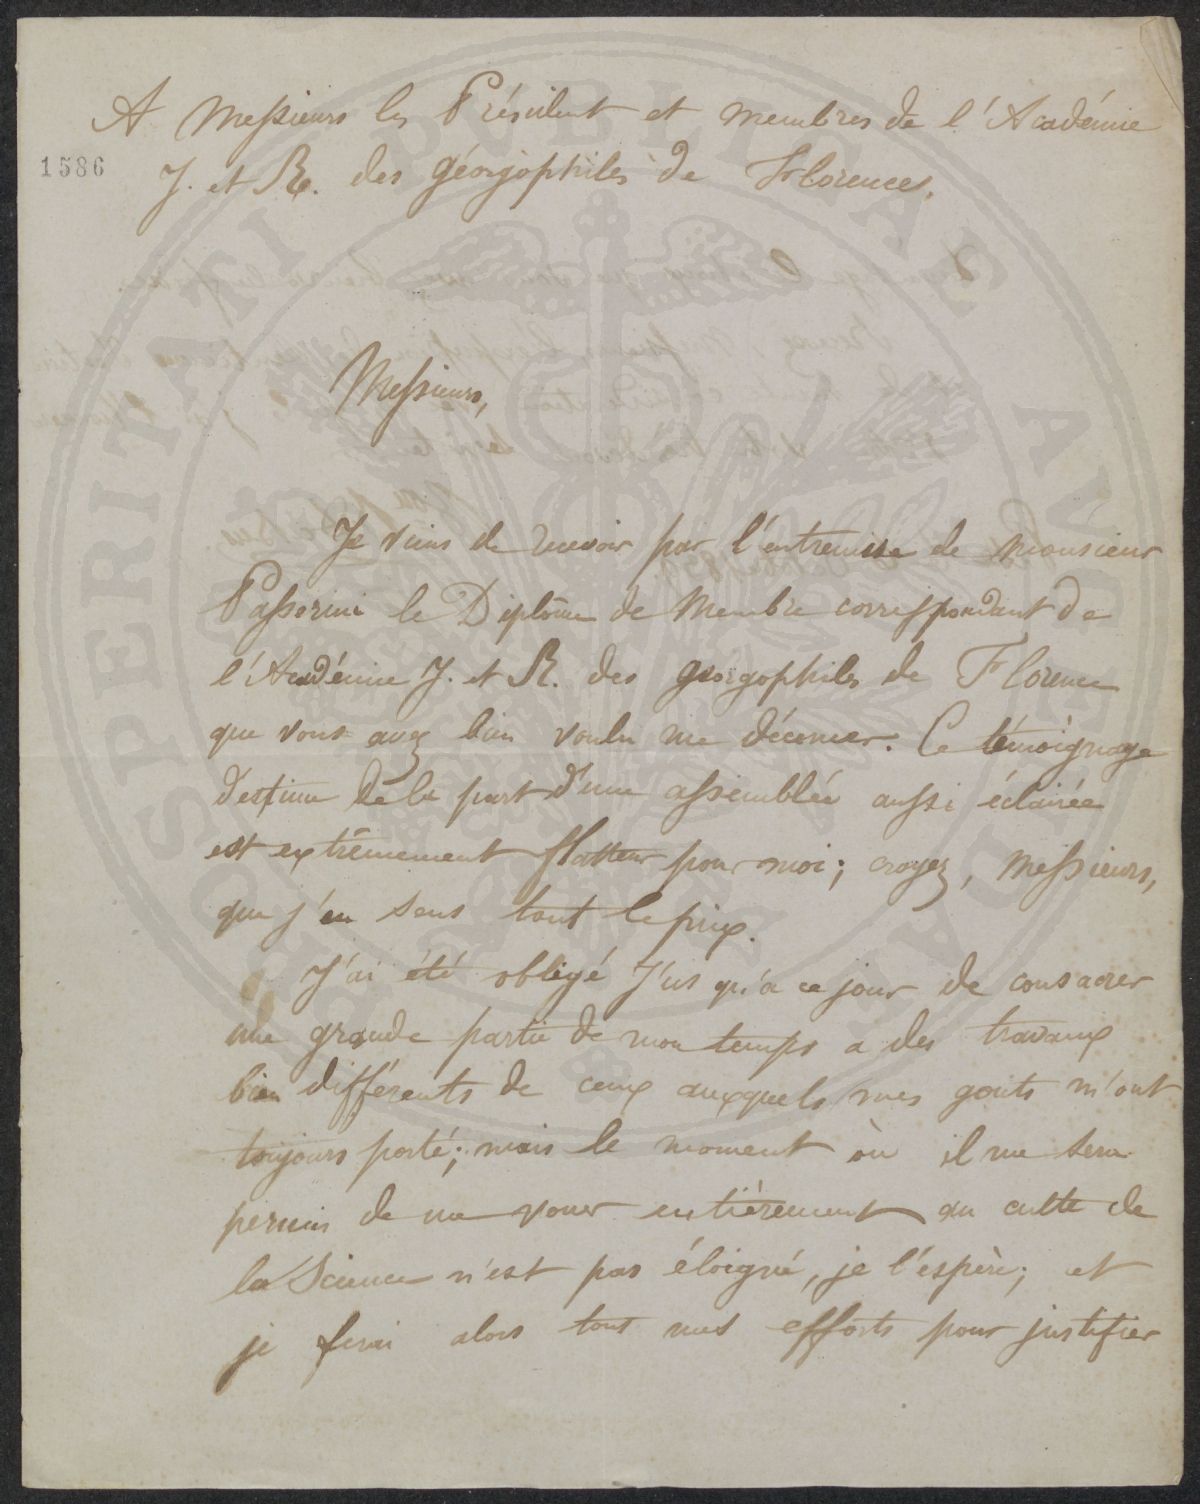 A Messieurs les Président et membres de l'Académie
1586
J. et R. des géorgophiles de Florence.
Messieurs,
Je viens de recevoir par l'entremise de monsieur
Passerini le Diplôme de Membre correspondant de
l'Académie J. et R. des géorgophiles de Florence
que vous avez bien voulu me décerner. Ce témoignage
d'estime de la part d'une assemblée aussi éclairée
est extrêmement flatteur pour moi; croyez, Messieurs,
que j'en sens tout le prix.
J'ai été obligé J'us qu'a ce jour de consacrer
une grande partie de mon temps a des travaux
bien différents de ceux auxquels mes gouts m'ont
toujours porté; mais le moment où il me sera
permis de me vouer entièrement au culte de
la Science n'est pas éloigné, je l'espère; et
je ferai alors tout mes efforts pour justifier
PROSPERITATI PUBLICAE AUGENDAE